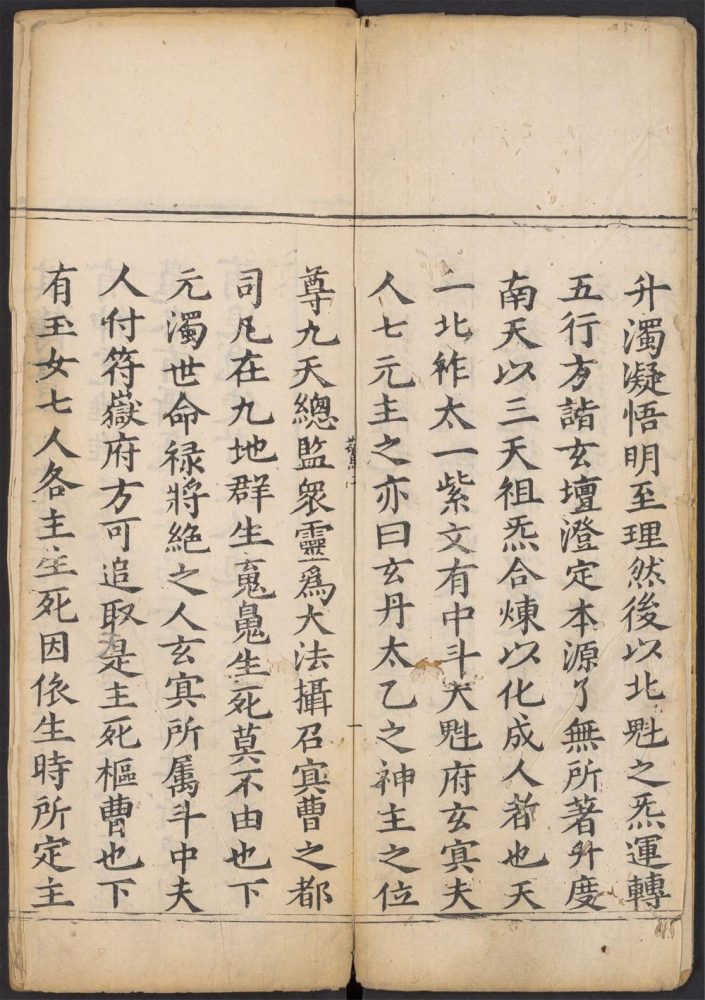 升濁凝悟明至理然後以北魁之炁運轉
五行方詣玄壇澄定本源了無所著升度
南天以三天祖炁合煉以化成人者也天
一北祚太一紫文有中斗天魁府玄冥夫
人七元主之亦曰玄丹太乙之神主之位
尊九天總監衆靈爲大法攝召冥曹之都
司凡在九地群生鬼鬽生死莫不由也下
元濁世命禄將絶之人玄冥所属斗中夫
人付符嶽府方可追取是主死樞曹也下
有玉女七人各主生死因依生時所定主